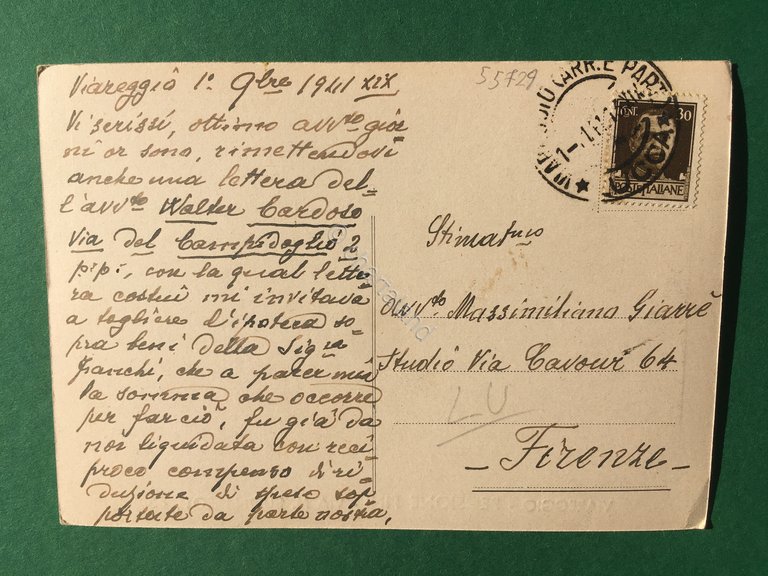 Viareggio 1° 9bre 1941 XIX
Vi scrissi, ottimo avv.to gior=
ni or sono, rimettendovi
anche una lettera del=
l'avv.to Walter Cardoso
Via del Campidoglio 2
p.p.i, con la qual lette=
ra costui mi invitava
a togliere l'ipoteca so=
pra beni della Sig.ra
Franchi, che a parer mio
la somma che occorre
per farciò, fu già da
noi liquidata con reci=
proco compenso di ri=
duzione di spese sop=
portate da parte nostra,
55729
VIAREGGIO CARR. E PARTE
LUCCA
CENT. 30
POSTE ITALIANE
Stimat.mo
avv.to Massimiliano Giarrè
Studio Via Cavour 64
LU
- Firenze -